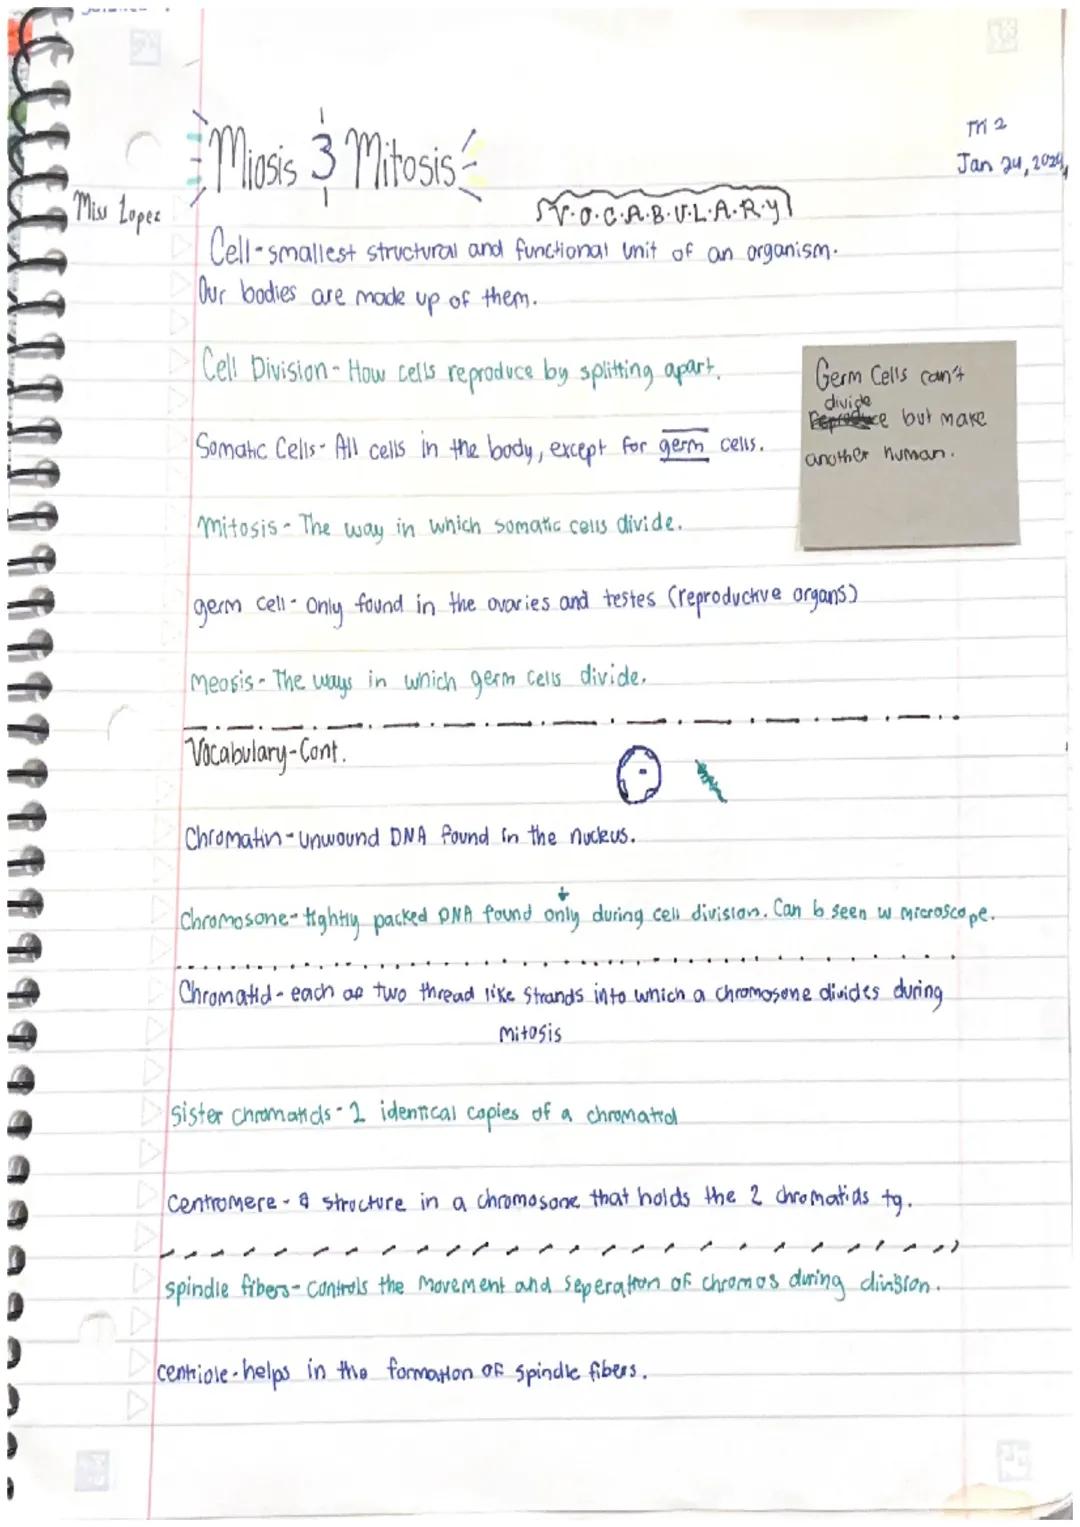 Miosis & Mitosis
Tri 2
Jan 24, 2024
Miss Lopez
V.O.C.A.B.U.L.A.R.Y
Cell - smallest structural and functional unit of an organism.
Our bodies are made up of them.
Cell Division - How cells reproduce by splitting apart.
Germ Cells can't
divide
Reproduce but make
another human.
Somatic Cells - All cells in the body, except for germ cells.
Mitosis - The way in which somatic cells divide.
germ cell - Only found in the ovaries and testes (reproductive organs)
Meosis - The ways in which germ cells divide.
Vocabulary - Cont.
Chromatin - unwound DNA found in the nucleus.
Chromosone - tightly packed DNA found only during cell division. Can b seen w microscope.
Chromatid - each of two thread like strands into which a chromosone divides during
mitosis
Sister chromatids - 2 identical copies of a chromatid
Centromere - a structure in a chromosone that holds the 2 chromatids tg.
spindle fibers - Controls the movement and seperation of chromos during division.
centriole - helps in the formation of spindle fibers.